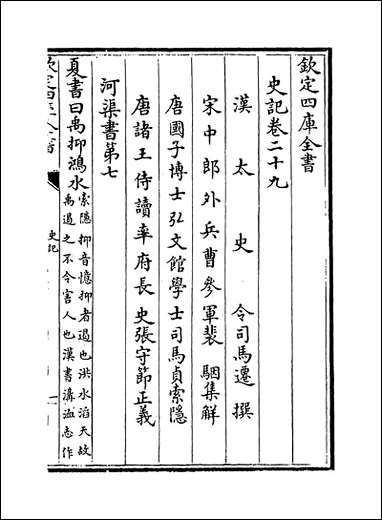 欽定四庫全書
史記卷二十九
漢太史令司馬遷撰
宋中郎外兵曹參軍裴駰集解
唐國子博士弘文館學士司馬貞索隱
唐諸王侍讀率府長史張守節正義
河渠書第七
夏書曰禹抑鴻水
索隱抑音憶抑者遏也洪水滔天故
禹遏之不令害人也漢書溝洫志作
欽定四庫全書
史記
一